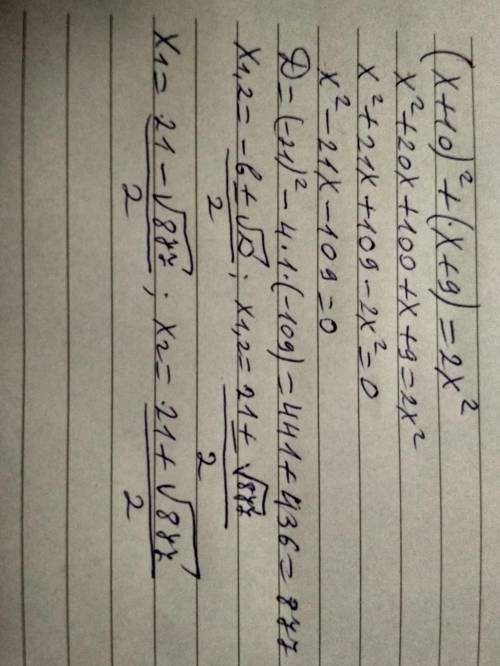 (x+10)² + (x+9) = 2x²
x²+20x+100+x+9=2x²
x²+21x+109-2x²=0
x²-21x-109=0
D=(-21)²-4·1·(-109)=441+436=877
x1,2= -b±√D / 2 ; x1,2= 21± √877 / 2
x1= 21-√877 / 2 ; x2= 21+√877 / 2